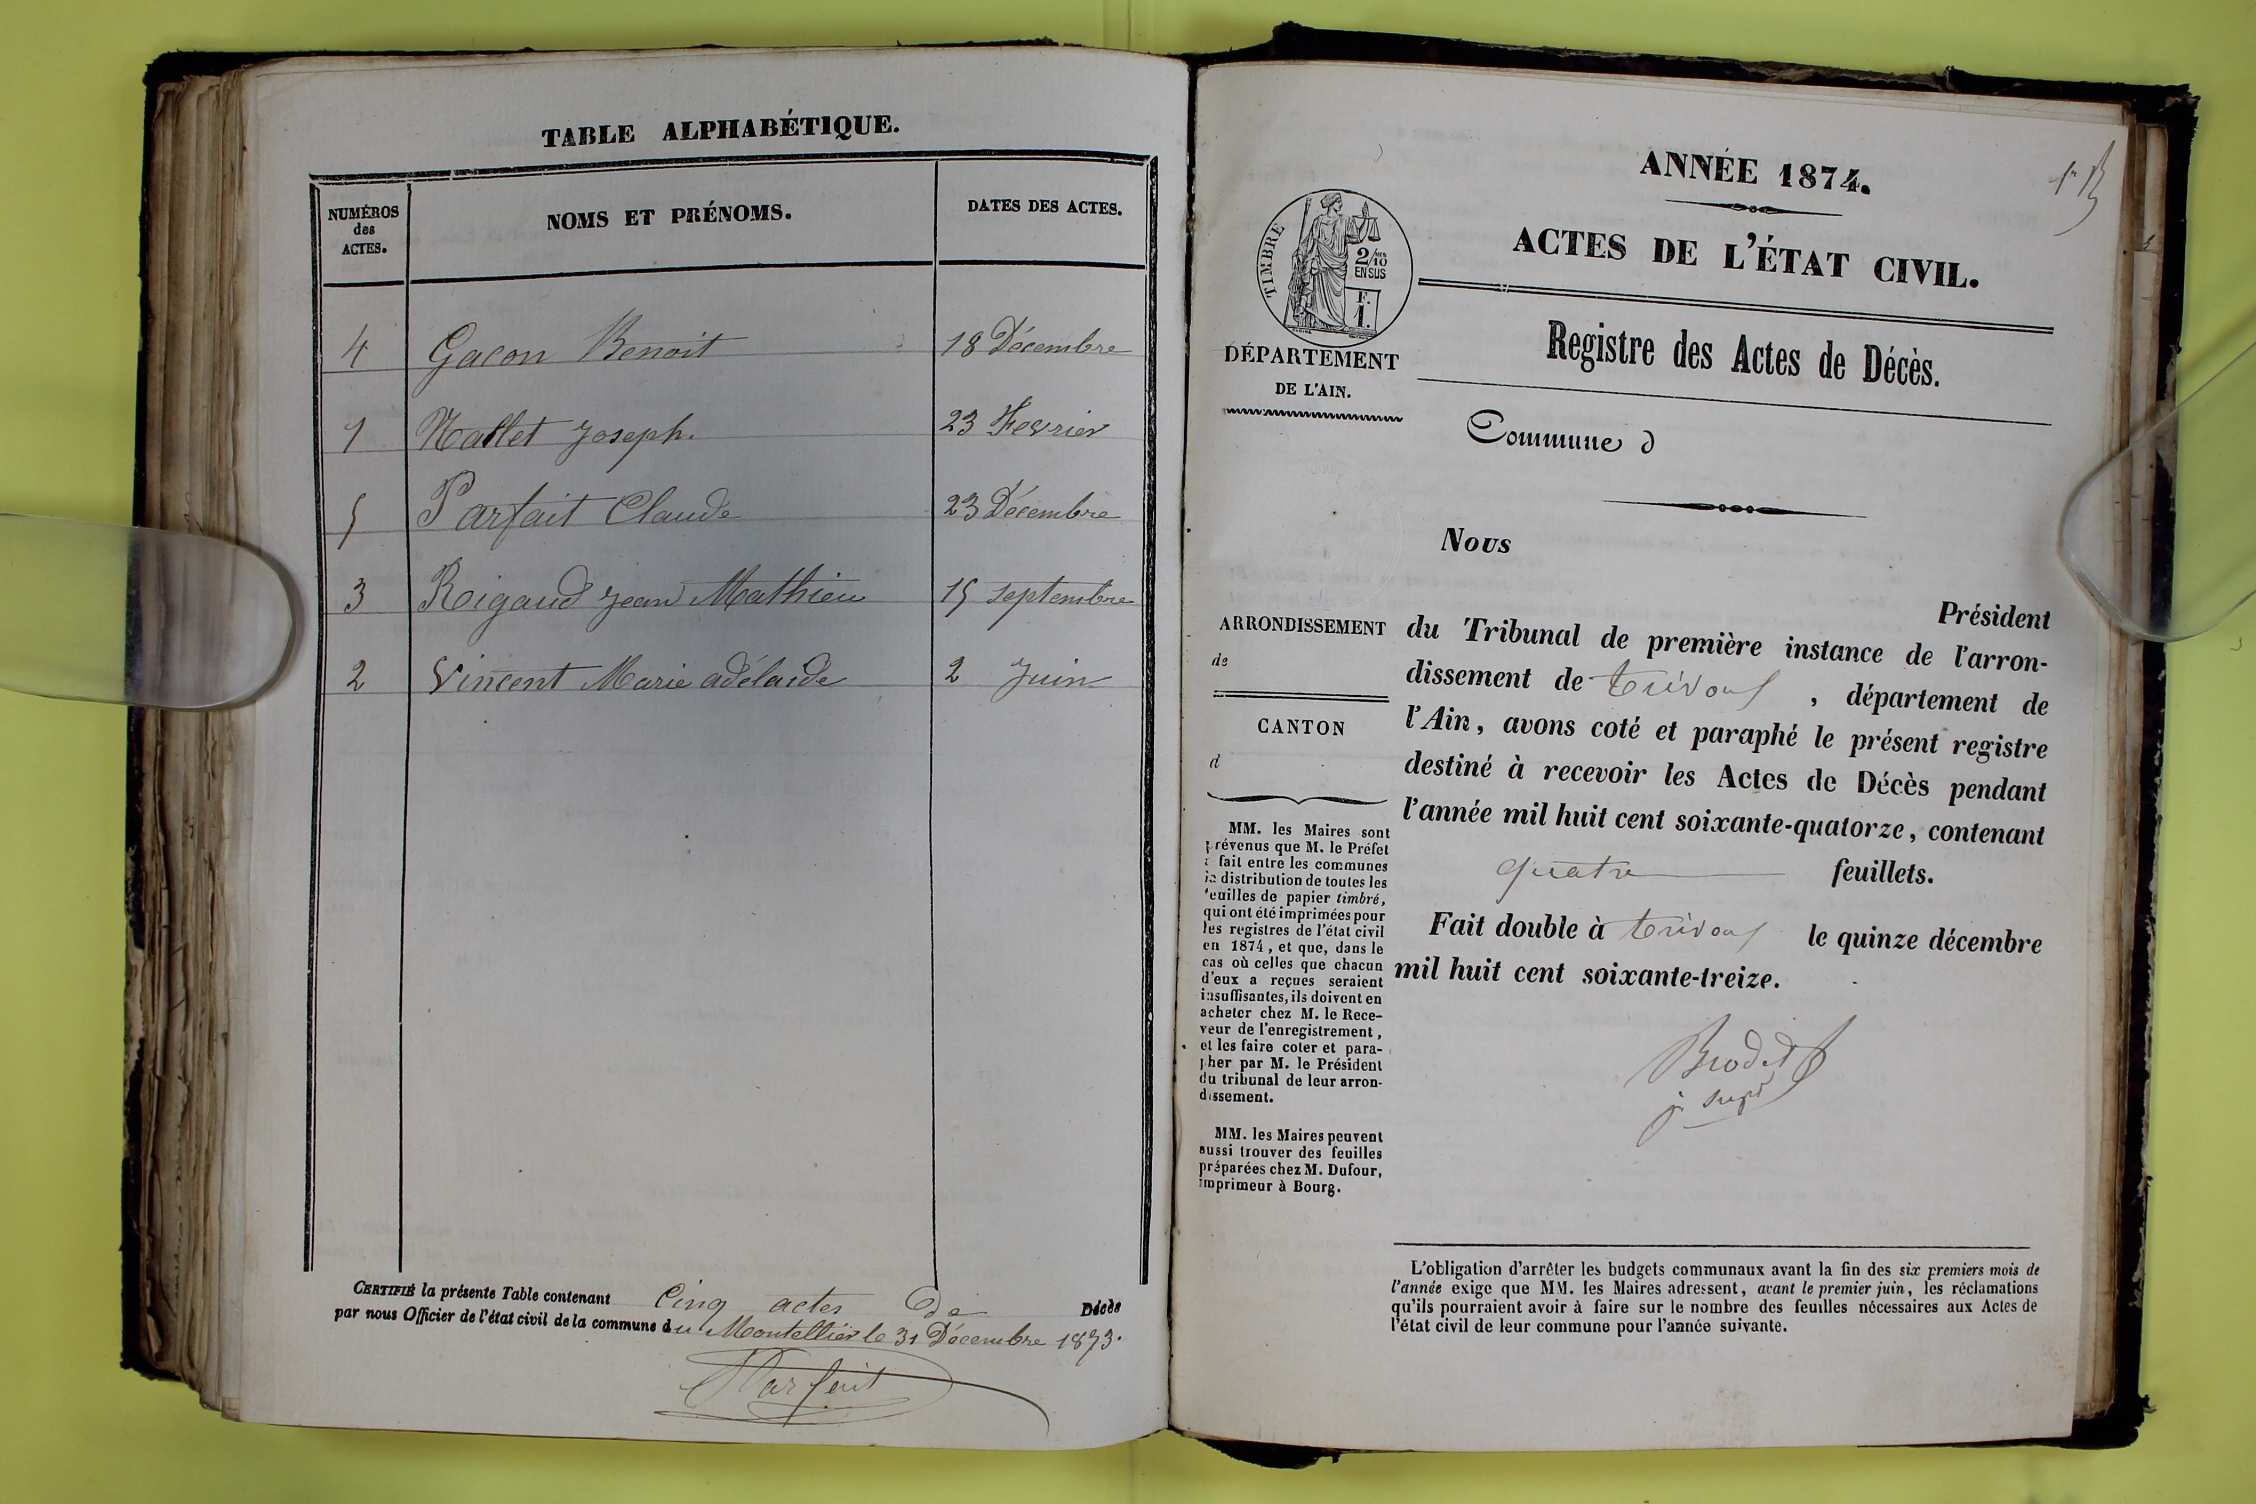 TABLE ALPHABÉTIQUE.
NUMÉROS
des
ACTES.
NOMS ET PRÉNOMS.
DATES DES ACTES.
4 Gacon Benoit 18 Décembre
1 Mallet Joseph. 23 Fevrier
5 Parfait Claude 23 Décembre
3 Rigaud Jean Mathieu 15 septembre
2 Vincent Marie adélaide 2 Juin
CERTIFIÉ la présente Table contenant Cinq actes de Décès
par nous Officier de l'état civil de la commune du Montellier le 31 Décembre 1873.
Parfait
ANNÉE 1874.
ACTES DE L'ÉTAT CIVIL.
TIMBRE
2/10
EN SUS
F.
1.
DÉPARTEMENT
DE L'AIN.
Registre des Actes de Décès.
Commune d
Nous
Président
du Tribunal de première instance de l'arron-
dissement de trévoux, département de
l'Ain, avons coté et paraphé le présent registre
destiné à recevoir les Actes de Décès pendant
l'année mil huit cent soixante-quatorze, contenant
quatre feuillets.
Fait double à trévoux le quinze décembre
mil huit cent soixante-treize.
ARRONDISSEMENT
de
CANTON
d
MM. les Maires sont
prévenus que M. le Préfet
a fait entre les communes
la distribution de toutes les
feuilles de papier timbré,
qui ont été imprimées pour
les registres de l'état civil
en 1874, et que, dans le
cas où celles que chacun
d'eux a reçues seraient
insuffisantes, ils doivent en
acheter chez M. le Rece-
veur de l'enregistrement,
et les faire coter et para-
pher par M. le Président
du tribunal de leur arron-
dissement.
MM. les Maires peuvent
aussi trouver des feuilles
préparées chez M. Dufour,
imprimeur à Bourg.
L'obligation d'arrêter les budgets communaux avant la fin des six premiers mois de
l'année exige que MM. les Maires adressent, avant le premier juin, les réclamations
qu'ils pourraient avoir à faire sur le nombre des feuilles nécessaires aux Actes de
l'état civil de leur commune pour l'année suivante.